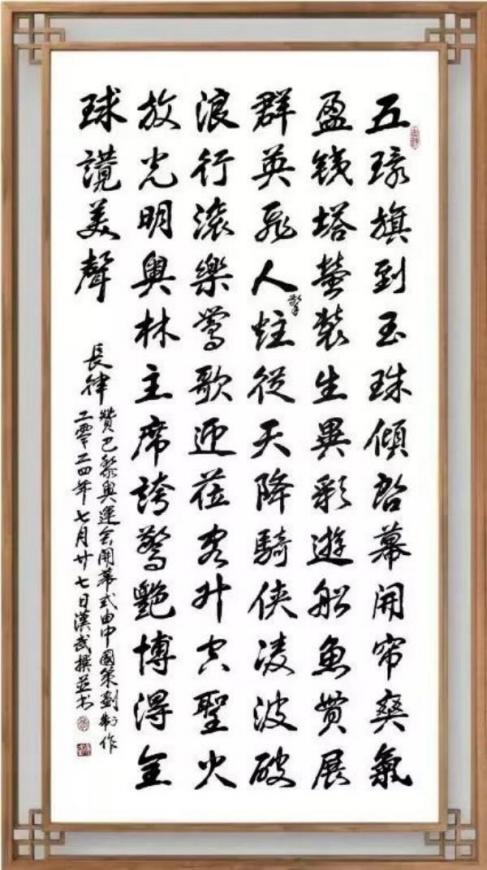 五环旗到玉珠傾啓幕開帘爽氣
盈鐵塔螢裝生異彩遊船魚貫展
群英飛人擎炷從天降騎侠凌波破
浪行滚樂鶯歌迎莅客升空聖火
放光明奥林主席誇驚艷博得全
球讚美聲
長律 贊巴黎奥運会開幕式由中國策劃制作
二零二四年七月廿七日漢武撰並书